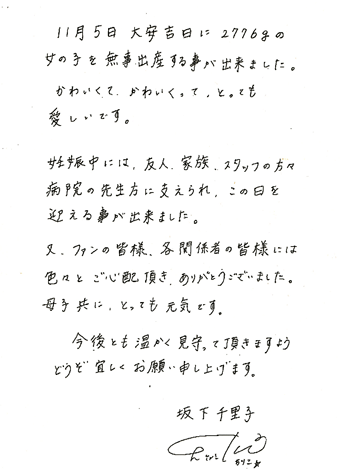 11月5日 大安吉日に 2776gの
女の子を 無事出産する事が出来ました。
かわいくて、かわいくって、とっても
愛しいです。
妊娠中には、友人、家族、スタッフの方々
病院の先生方に支えられ、この日を
迎える事が出来ました。
又、ファンの皆様、各関係者の皆様には
色々と ご心配頂き、ありがとうございました。
母子共に、とっても 元気です。
今後とも温かく見守って頂きますよう
どうぞ宜しくお願い申し上げます。
坂下千里子